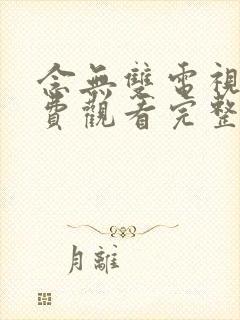 念無雙電視
費觀看完整
月離